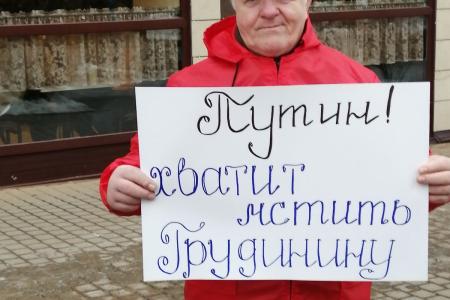 Путин!
хватит
мстить
Грудинину